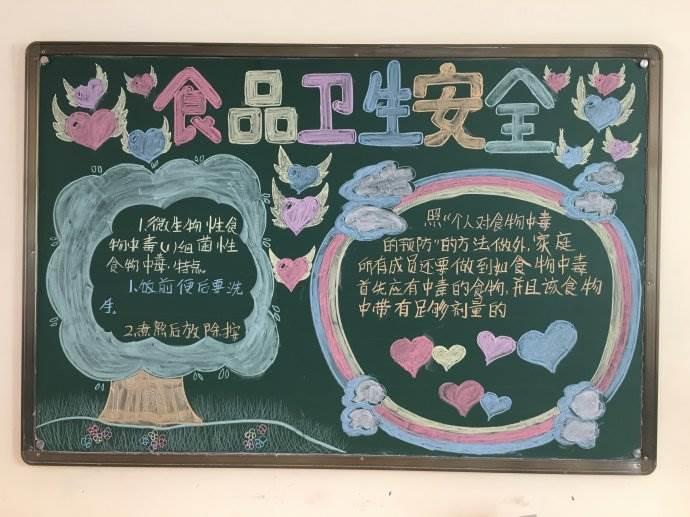 食品卫生安全
1.微生物性食
物中毒(1)细菌性
食物中毒.特点.
1.饭前便后要洗
手.
2.煮熟后放 除按
照“个人对食物中毒
的预防”的方法做外,家庭
所有成员还要做到如食物中毒
首先应有中毒的食物,并且该食物
中带有足够剂量的